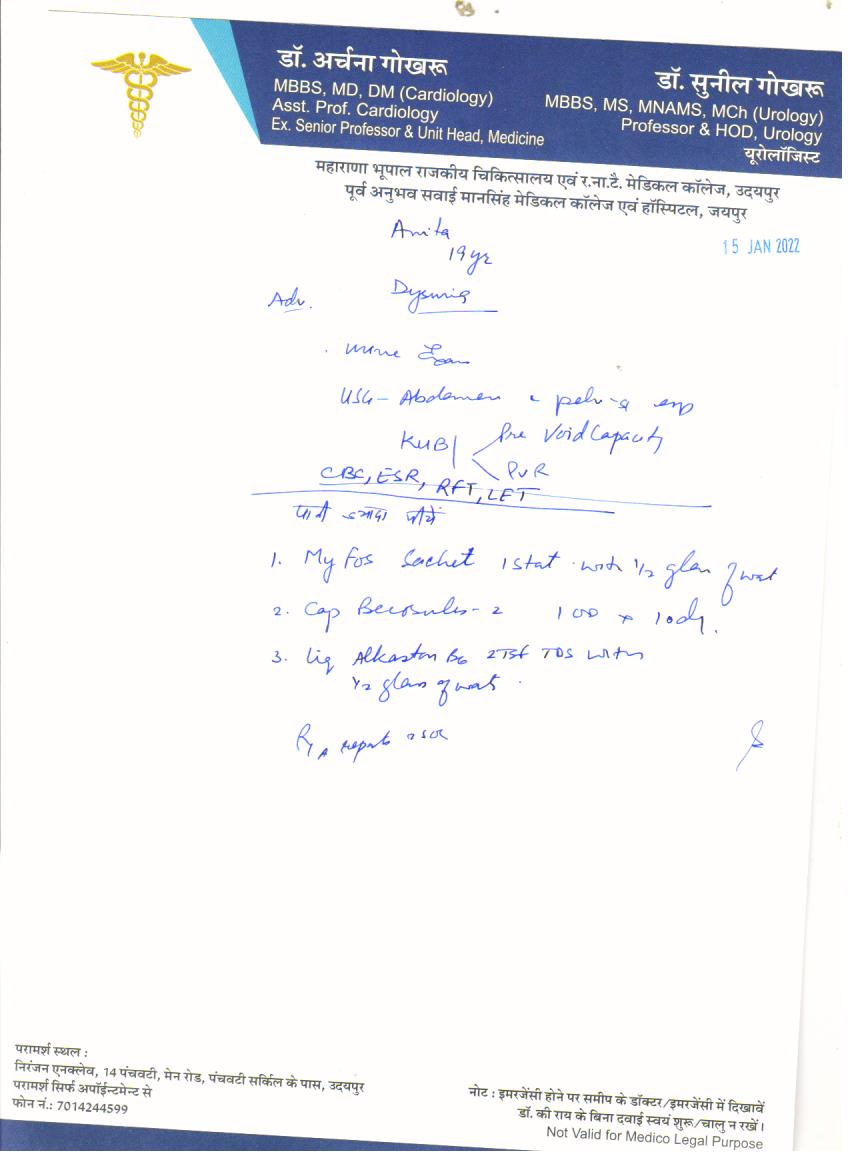 डॉ. अर्चना गोखरू
MBBS, MD, DM (Cardiology)
Asst. Prof. Cardiology
Ex. Senior Professor & Unit Head, Medicine
डॉ. सुनील गोखरू
MBBS, MS, MNAMS, MCh (Urology)
Professor & HOD, Urology
यूरोलॉजिस्ट
महाराणा भूपाल राजकीय चिकित्सालय एवं र.ना.टै. मेडिकल कॉलेज, उदयपुर
पूर्व अनुभव सवाई मानसिंह मेडिकल कॉलेज एवं हॉस्पिटल, जयपुर
15 JAN 2022
19 yr
Adv. Dysuria
urine Exam
USG - Abdomen
KUB Pre Void Capacity
PVR
CBC, ESR, RFT, LFT
पानी ज्यादा पीयें
1. My Fos Sachet 1 stat with 1/2 glass of wat
2. Cap Becosules - 2 1 OD x 10 dy.
3. Liq Alkaston B6 2 TSF TDS with
1/2 glass of wat.
reports
परामर्श स्थल :
निरंजन एनक्लेव, 14 पंचवटी, मेन रोड, पंचवटी सर्किल के पास, उदयपुर
परामर्श सिर्फ अपॉईन्टमेन्ट से
फोन नं.: 7014244599
नोट : इमरजेंसी होने पर समीप के डॉक्टर/इमरजेंसी में दिखावें
डॉ. की राय के बिना दवाई स्वयं शुरू/चालु न रखें।
Not Valid for Medico Legal Purpose